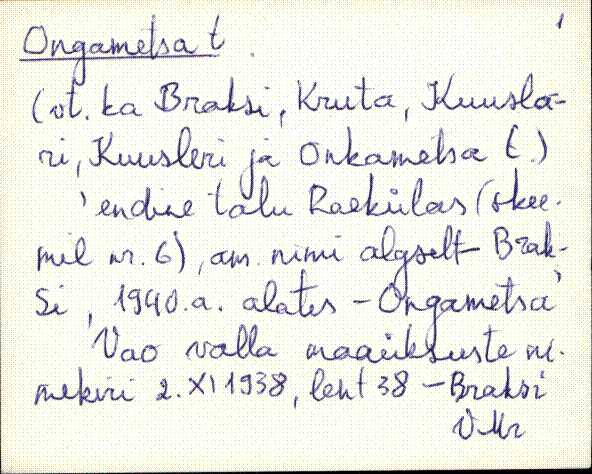 Ongametsa t. 1
(vt. ka Braksi, Kruta, Kuuslä-
ri, Kuusleri ja Onkametsa t.)
'endine talu Raekülas (skee-
mil nr. 6), am. nimi algselt Brak-
si, 1940.a. alates - Ongametsa'
Vao valla maaüksuste ni-
mekiri 2. XI 1938, leht 38 - Braksi
V. Mr